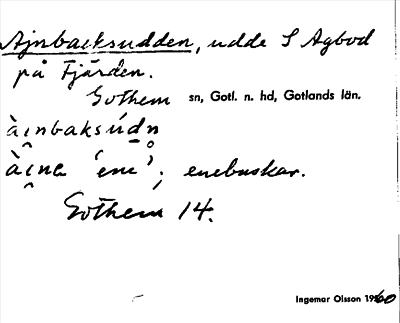 Ajnbacksudden, udde S Agbod
på Fjärden.
Gothem sn, Gotl. n. hd, Gotlands län.
àı̯nbaksúdn̥
àı̯na 'ene'; enebuskar.
Gothem 14.
Ingemar Olsson 1960